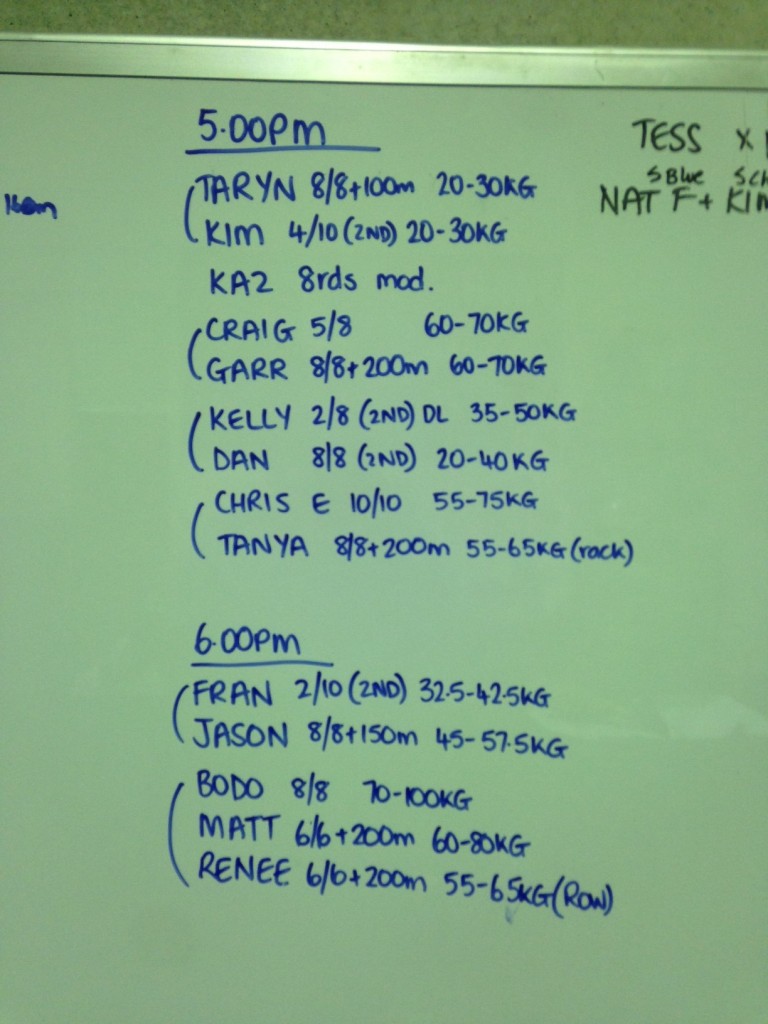 5.00pm
TARYN 8/8+100m 20-30KG
KIM 4/10 (2ND) 20-30KG
KAZ 8rds mod.
CRAIG 5/8 60-70KG
GARR 8/8+200m 60-70KG
KELLY 2/8 (2ND) DL 35-50KG
DAN 8/8 (2ND) 20-40KG
CHRIS E 10/10 55-75KG
TANYA 8/8+200m 55-65KG (rack)
6.00pm
FRAN 2/10 (2ND) 32.5-42.5KG
JASON 8/8+150m 45-57.5KG
BODO 8/8 70-100KG
MATT 6/6+200m 60-80KG
RENEE 6/6+200m 55-65KG (Row)
TESS x
5 Blue
NAT F + KIM